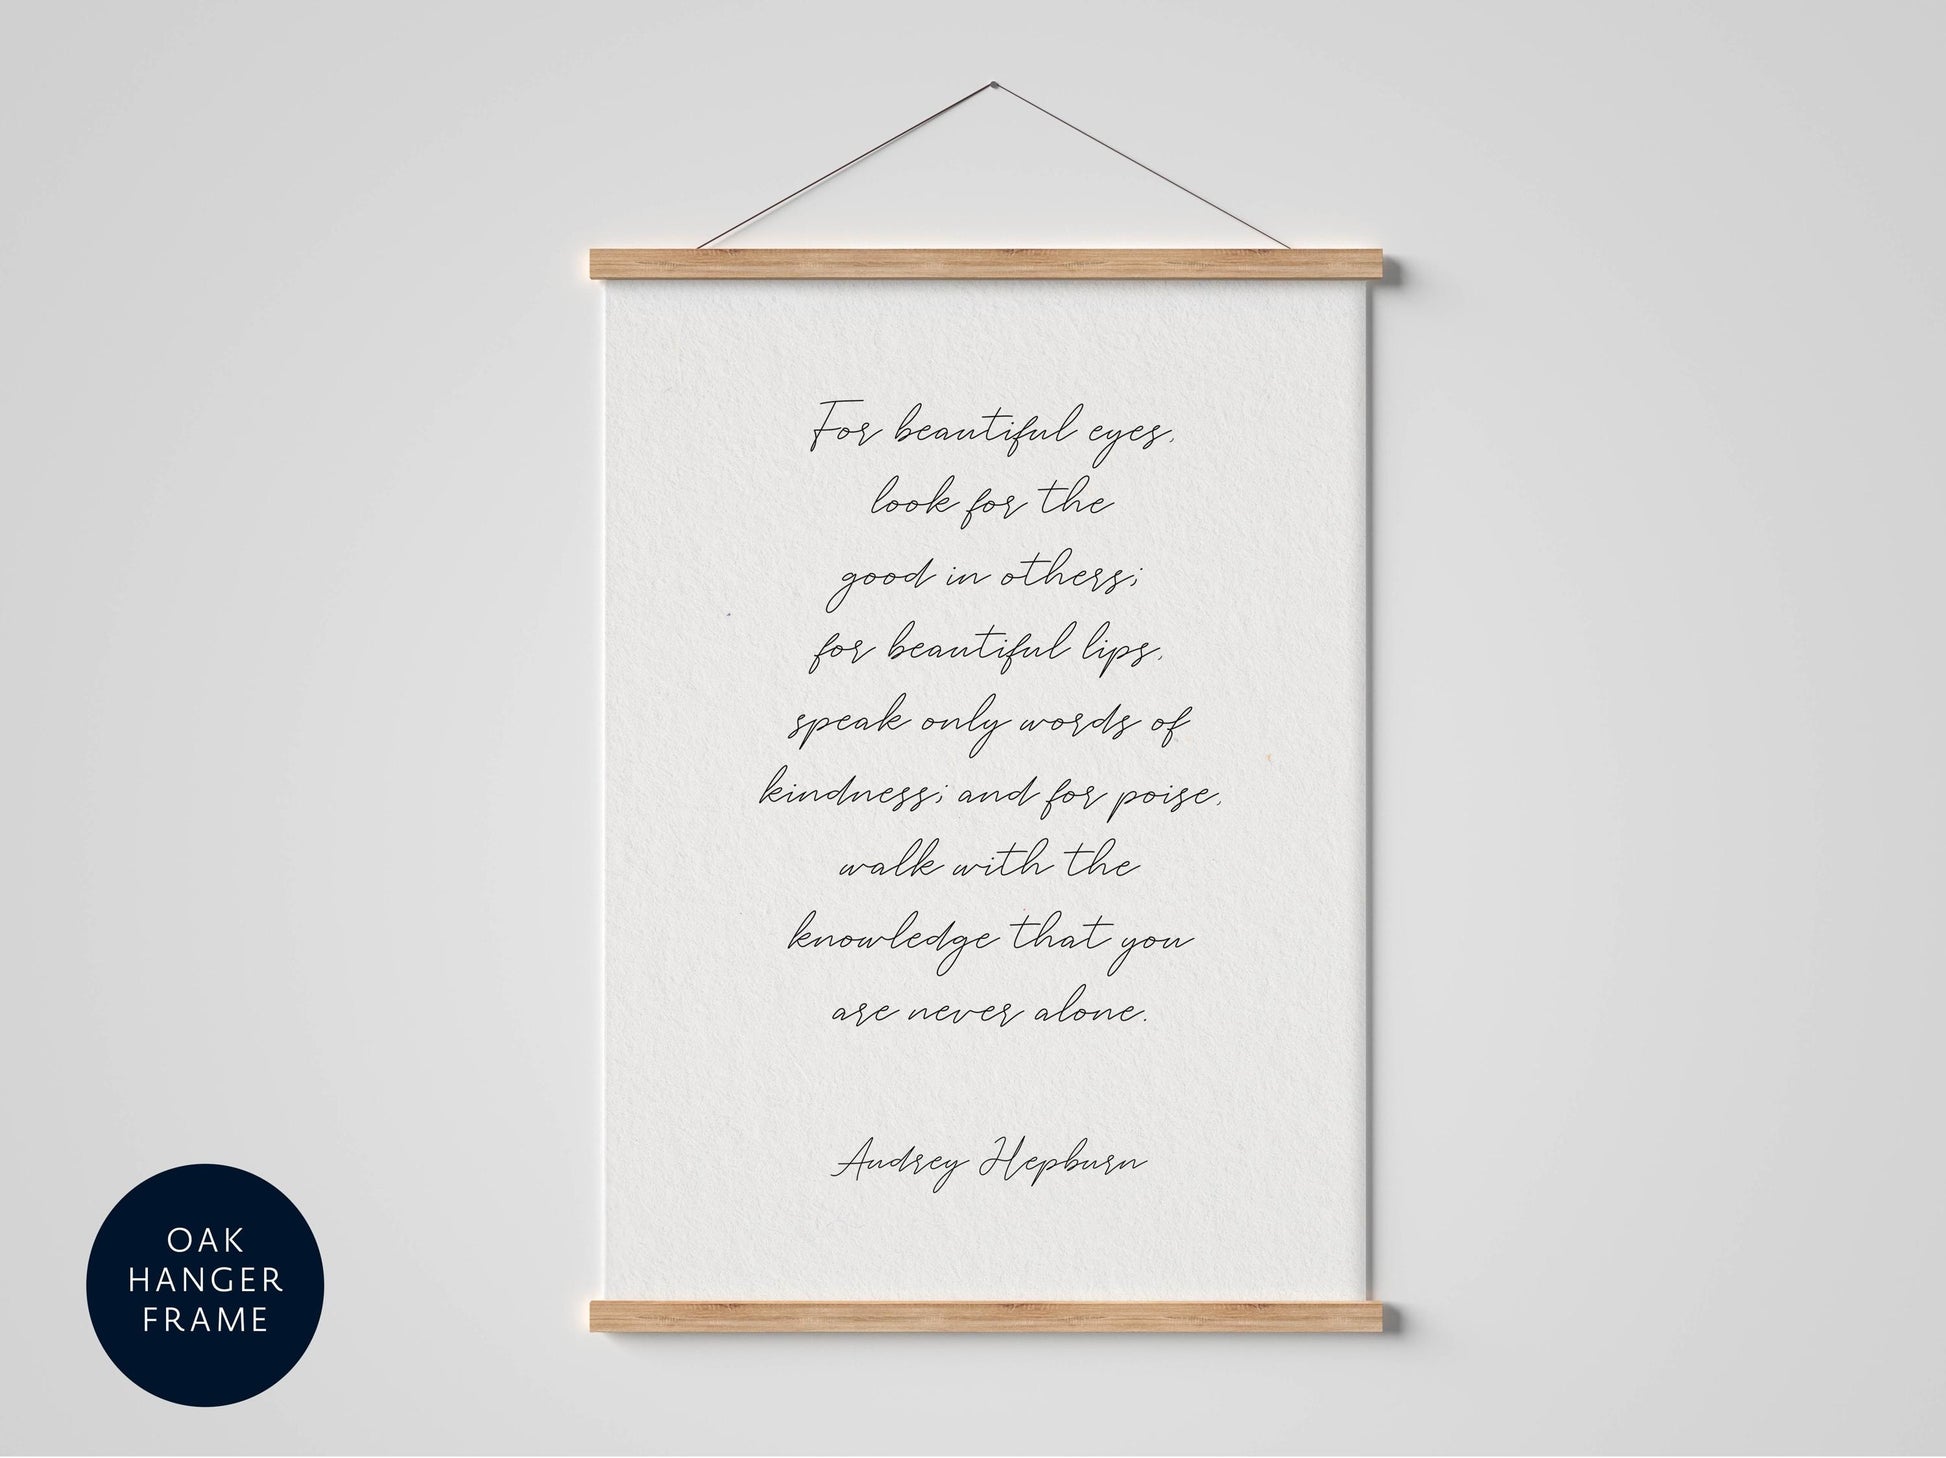 For beautiful eyes,
look for the
good in others;
for beautiful lips,
speak only words of
kindness; and for poise,
walk with the
knowledge that you
are never alone.
Audrey Hepburn
OAK
HANGER
FRAME